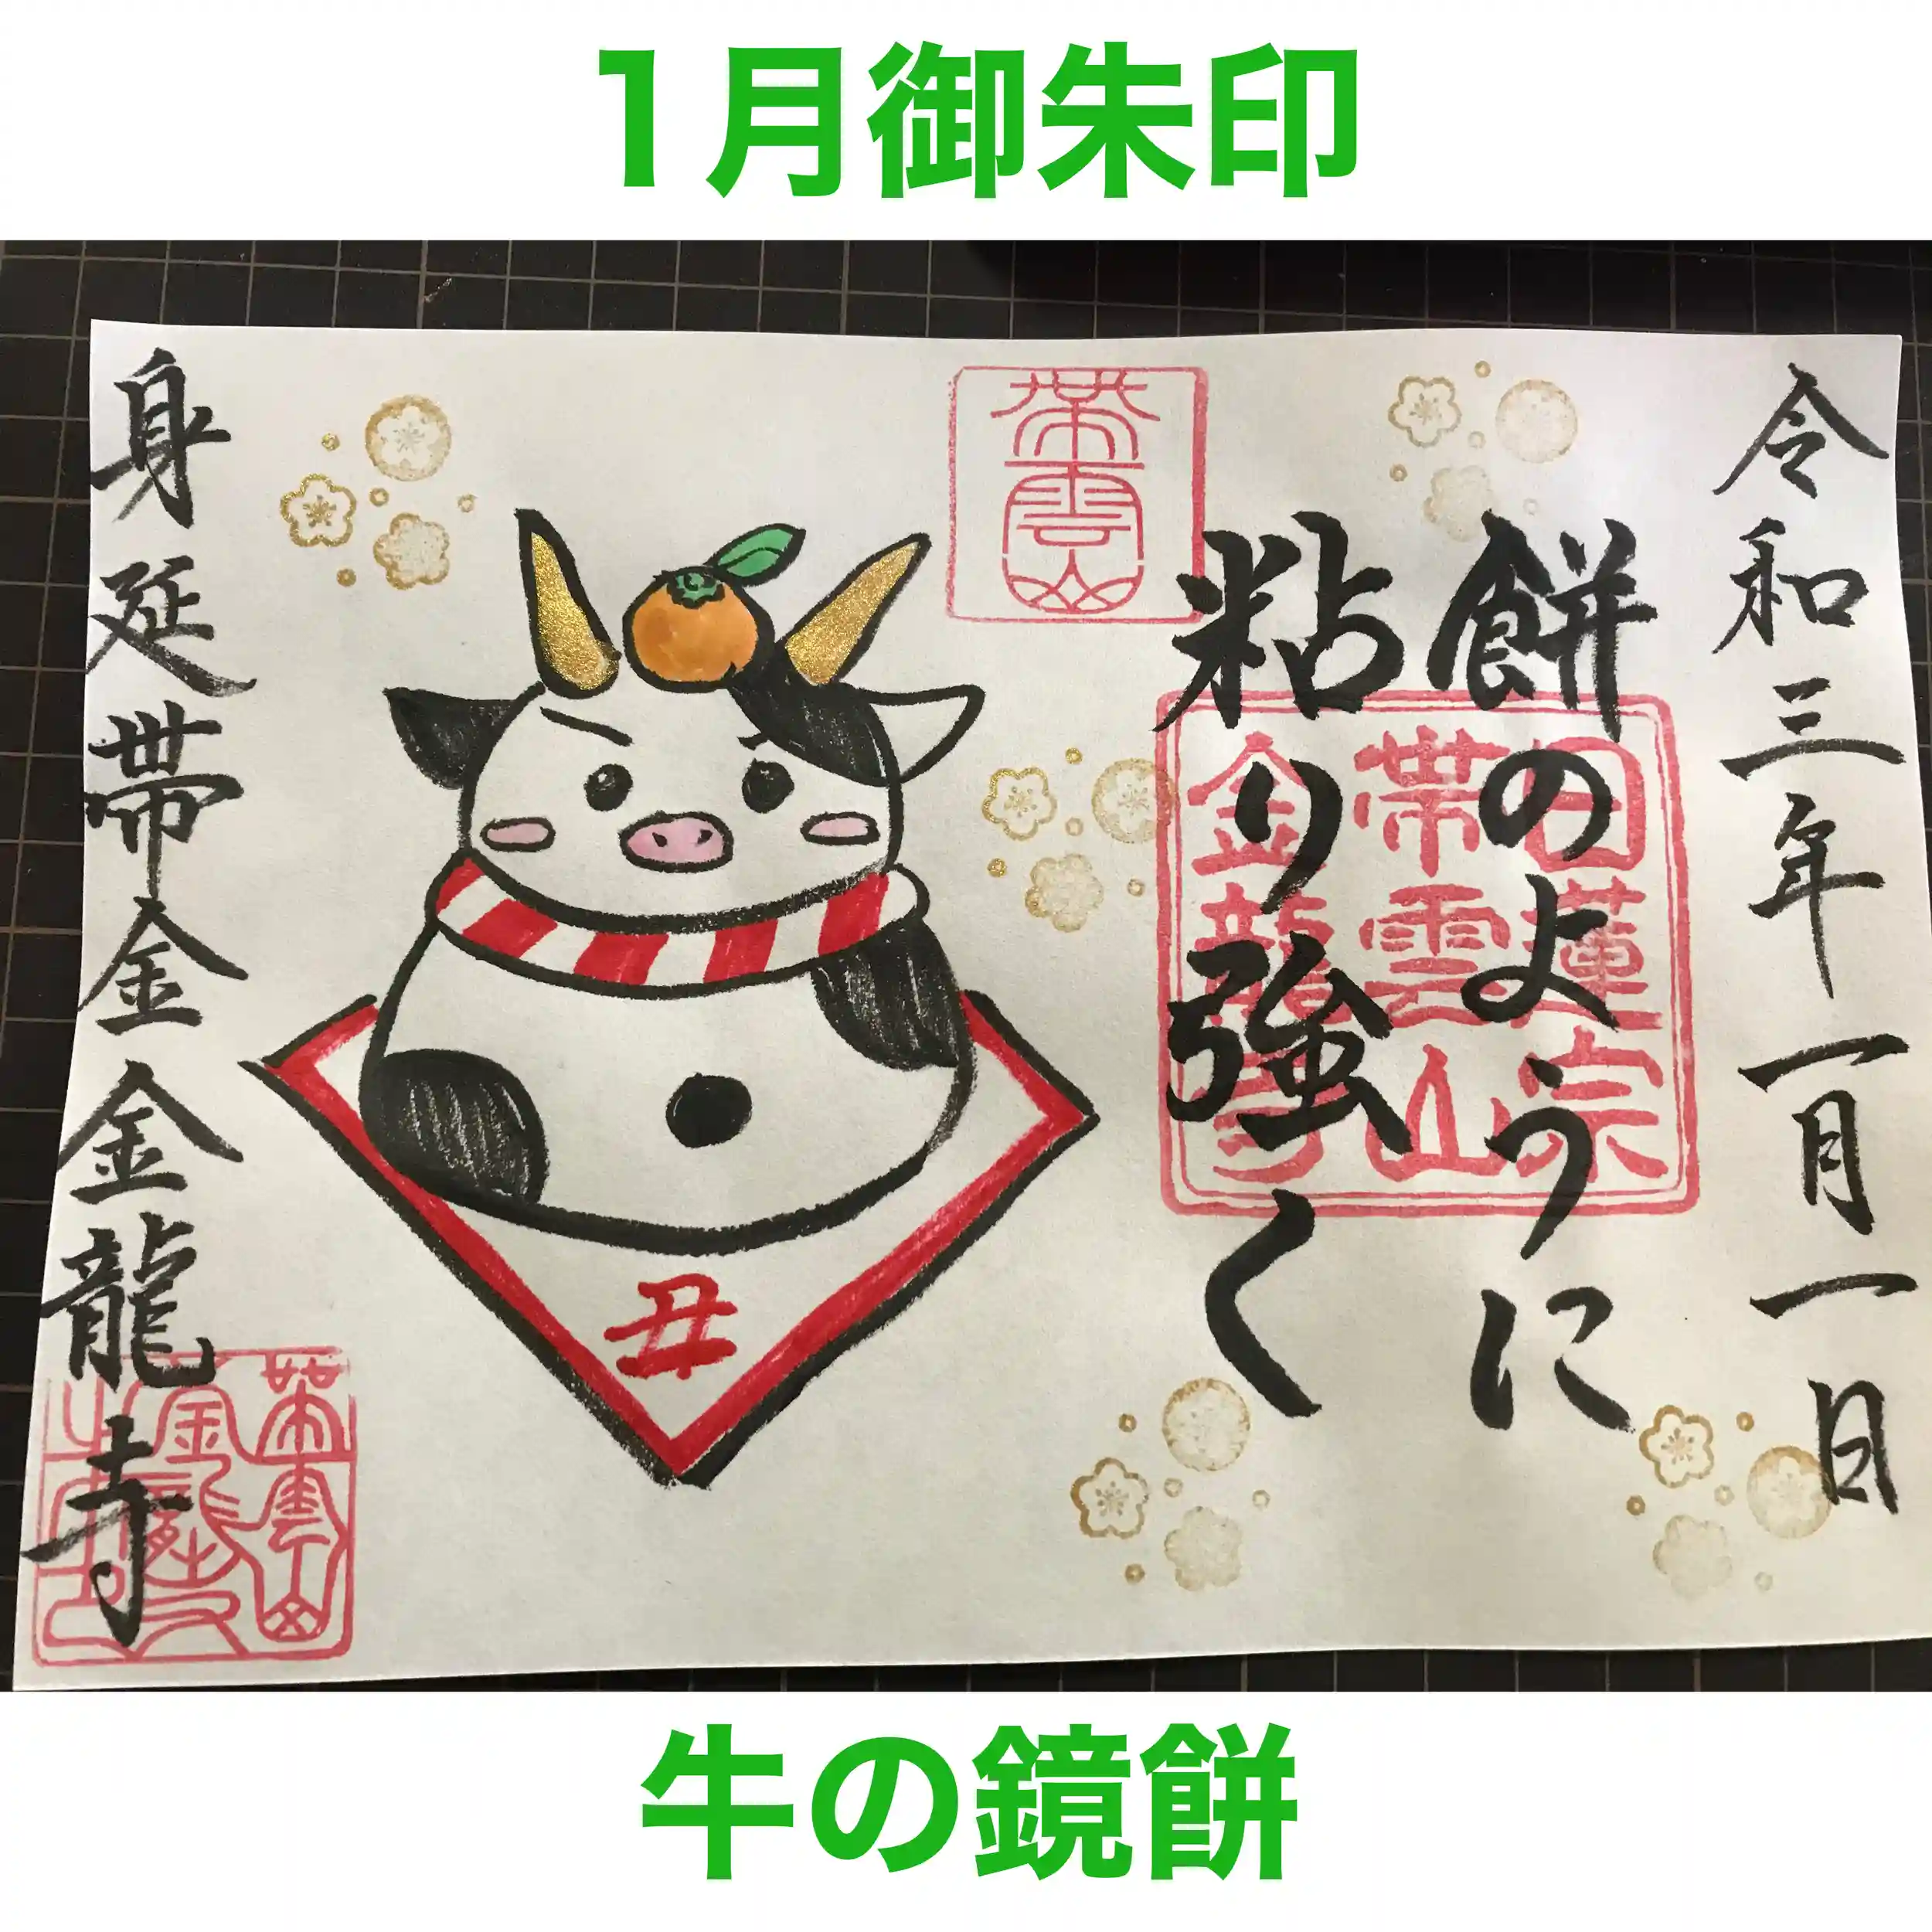 1月御朱印
令和三年一月一日
餅のように
粘り強く
帯雲山
日蓮宗
帯雲山
金龍寺
丑
身延帯金金龍寺
牛の鏡餅